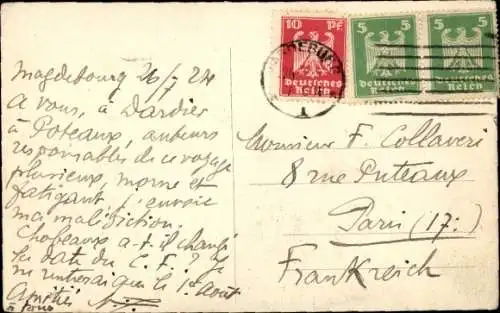 10 Pf.
Deutsches
Reich
5 5
Deutsches
Reich
5
Deutsches
Reich
Magdebourg 26/7 24
A vous, à Dardier
à Poteaux, auteurs
responsables de ce voyage
plurieux, morne et
fatigant j'envoie
ma malédiction.
Chobeaux a-t-il changé
la date du C.F.?
ne rentrerai que le 1er Août
Amitiés
à tous
Monsieur F. Collaveri
8 rue Puteaux
Paris (17:)
Frankreich